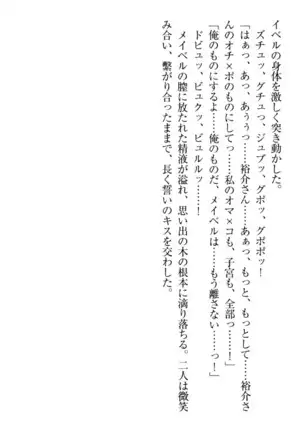 イベルの身体を激しく突き動かした。
　ズチュッ、グチュっ、ジュブッ、グポッ、グポポッ！
「はぁっ、あっ、あぅうっ……裕介さん……あぁっ、もっと、もっとして……裕介さ
んのオチ×ポのものにしてっ……私のオマ×コも、子宮も、全部っ……！」
「俺のものにするよ……俺のものだ、メイベルは……もう離さない……っ！」
　ドビュッ、ビュクッ、ビュルルッ……！
　メイベルの膣に放たれた精液が溢れ、思い出の木の根本に滴り落ちる。二人は微笑
み合い、繋がり合ったままで、長く誓いのキスを交わした。